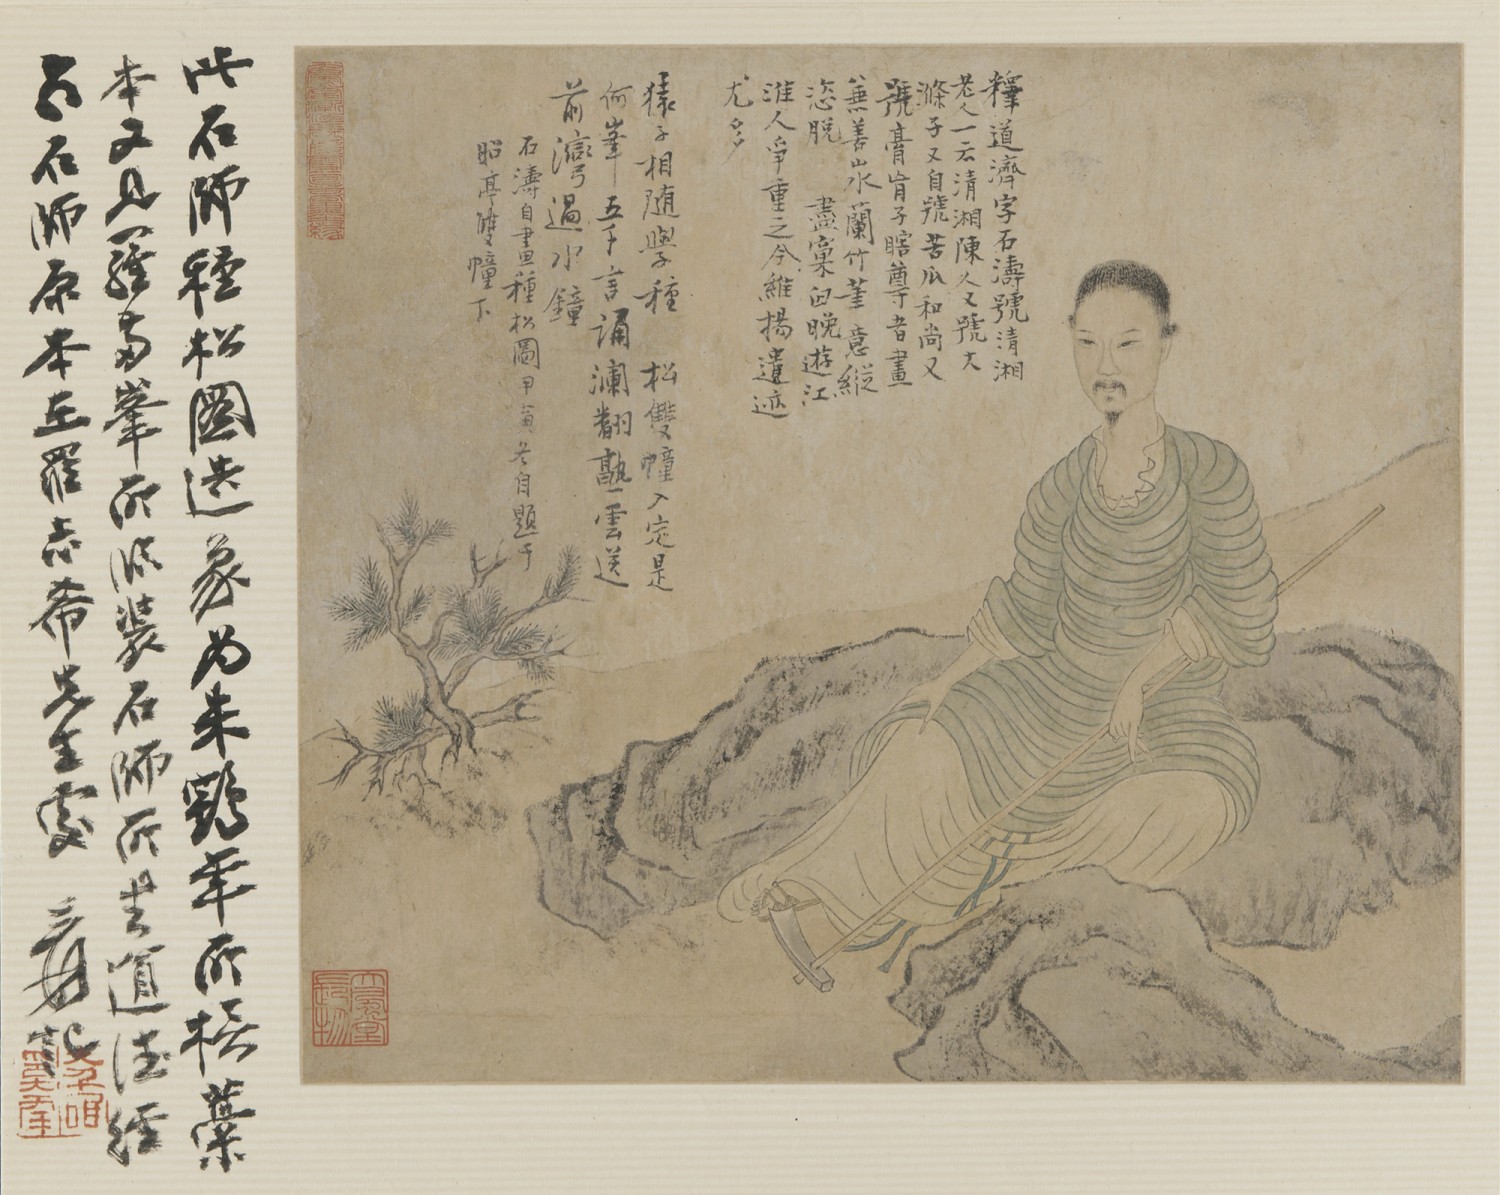 釋道濟字石濤號清湘
老人一云清湘陳人又號大
滌子又自號苦瓜和尚又
號膏肓子瞎尊者畫
兼善山水蘭竹筆意縱
恣脫盡窠臼晚遊江
淮人爭重之今維揚遺迹
尤多
猿子相隨學種松雙幢入定是
何峯五千言誦瀾翻熟雲送
前灣過水鐘
石濤自畫種松圖甲寅冬自題于
昭亭雙幢下
此石師種松圖造象为朱鶴年所橅藁
本又見羅兩峯所臨裝石師所書道德經
石師原本在羅志希先生處 爰記
大風堂
長物